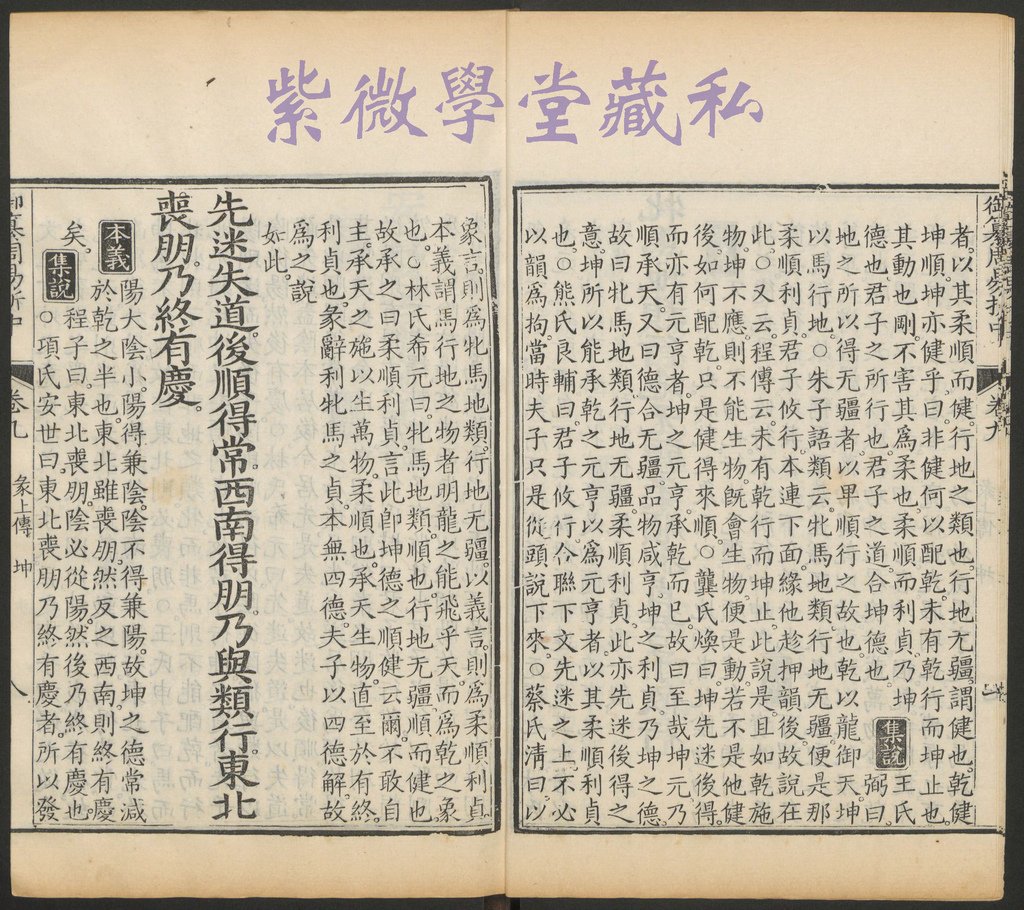 紫微學堂藏私
御纂周易折中 卷九
者。以其柔順而健。行地之類也。行地无疆。謂健也。乾健
坤順。坤亦健乎。曰非健何以配乾。未有乾行而坤止也。
其動也剛。不害其爲柔也。柔順而利貞。乃坤
德也。君子之所行也。君子之道合坤德也。
集說
王氏
弼曰。
地之所以得无疆者。以卑順行之故也。乾以龍御天。坤
以馬行地。○朱子語類云。牝馬地類。行地无疆。便是那
柔順利貞。君子攸行。本連下面。緣他趁押韻後。故說在
此。○又云。程傳云。未有乾行而坤止。此說是。且如乾施
物。坤不應。則不能生物。旣會生物。便是動。若不是他健
後。如何配乾。只是健得來順。○龔氏煥曰。坤先迷後得。
而亦有元亨者。坤之元亨。承乾而已。故曰至哉坤元乃
順承天。又曰德合无疆。品物咸亨。坤之利貞。乃坤之德。
故曰牝馬地類。行地无疆。柔順利貞。此亦先迷後得之
意。坤所以能承乾之元亨以爲元亨者。以其柔順利貞
也。○熊氏良輔曰。君子攸行。合聯下文先迷之上。不必
以韻爲拘。當時夫子只是從頭說下來。○蔡氏淸曰。以
象言。則爲牝馬地類。行地无疆。以義言。則爲柔順利貞。
本義謂馬行地之物者。明龍之能飛乎天而爲乾之象
也。○林氏希元曰。牝馬地類。順也。行地无疆。順而健也。
故承之曰柔順利貞。言此卽坤德之順健云爾。不敢自
主。承天之施。以生萬物。柔順也。承天生物。直至於有終。
利貞也。彖辭利牝馬之貞。本無四德。夫子以四德解。故
爲之說
如此。
先迷失道。後順得常。西南得朋。乃與類行。東北
喪朋。乃終有慶。
本義
陽大陰小。陽得兼陰。陰不得兼陽。故坤之德常減
於乾之半也。東北雖喪朋。然反之西南。則終有慶
矣。
集說
程子曰。東北喪朋。陰必從陽。然後乃終有慶也。
○項氏安世曰。東北喪朋。乃終有慶者。所以發
御纂周易折中 卷九 彖上傳 坤 八